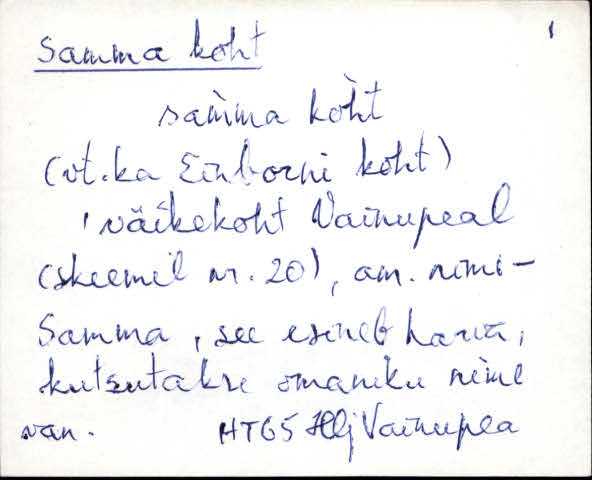 Samma koht
1
sam̀ma koh̀t
(vt. ka Einborni koht)
väikekoht Vainupeal
(skeemil nr. 20), am. nimi-
Samma, see esineb harva,
kutsutakse omaniku nime
HTG5 Hlj Vainupea